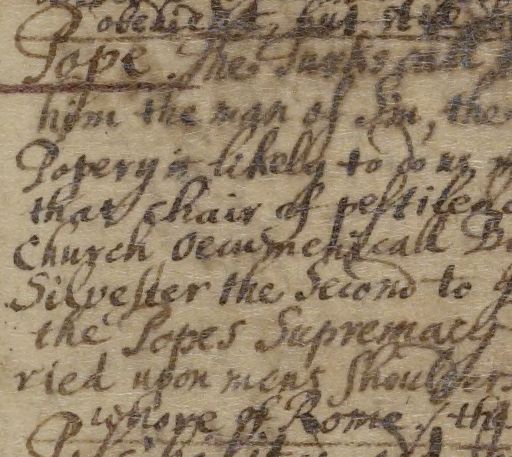 obedient, but
Pope. The Turks call
him the man of Sin, the
Popery is likely to do us
that chair of pestilenc
Church Oecumenicall B
Silvester the Second to
the Popes Supremacy
ried upon mens shoulders
whore of Rome / the